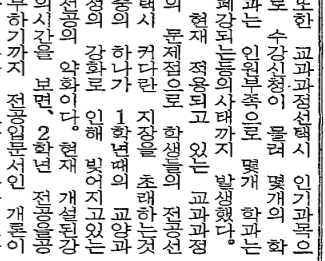 또한 교과과정선택시 인기과목으
로 수강신청이 몰려 몇개의 학
과는 인원부족으로 몇개 학과는
폐강되는등의사태까지 발생했다.
현재 적용되고 있는 교과과정
의 문제점으로 학생들의 전공선
택시 커다란 지장을 초래하는것
중의 하나가 1학년때의 교양과
정의 강화로 인해 빚어지고있는
전공의 약화이다. 현재 개설된강
의시간을 보면, 2학년 전공을공
부하기까지 전공입문서인 개론이